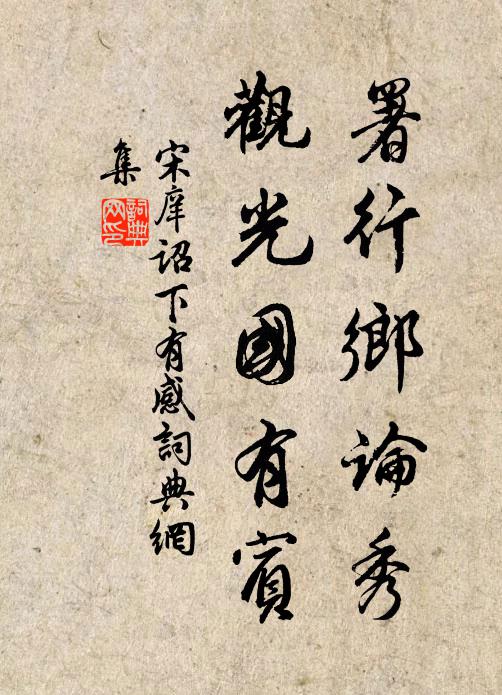 署行鄉論秀
觀光國有賓
宋庠詔下有感詞典網
集
詞典
网印